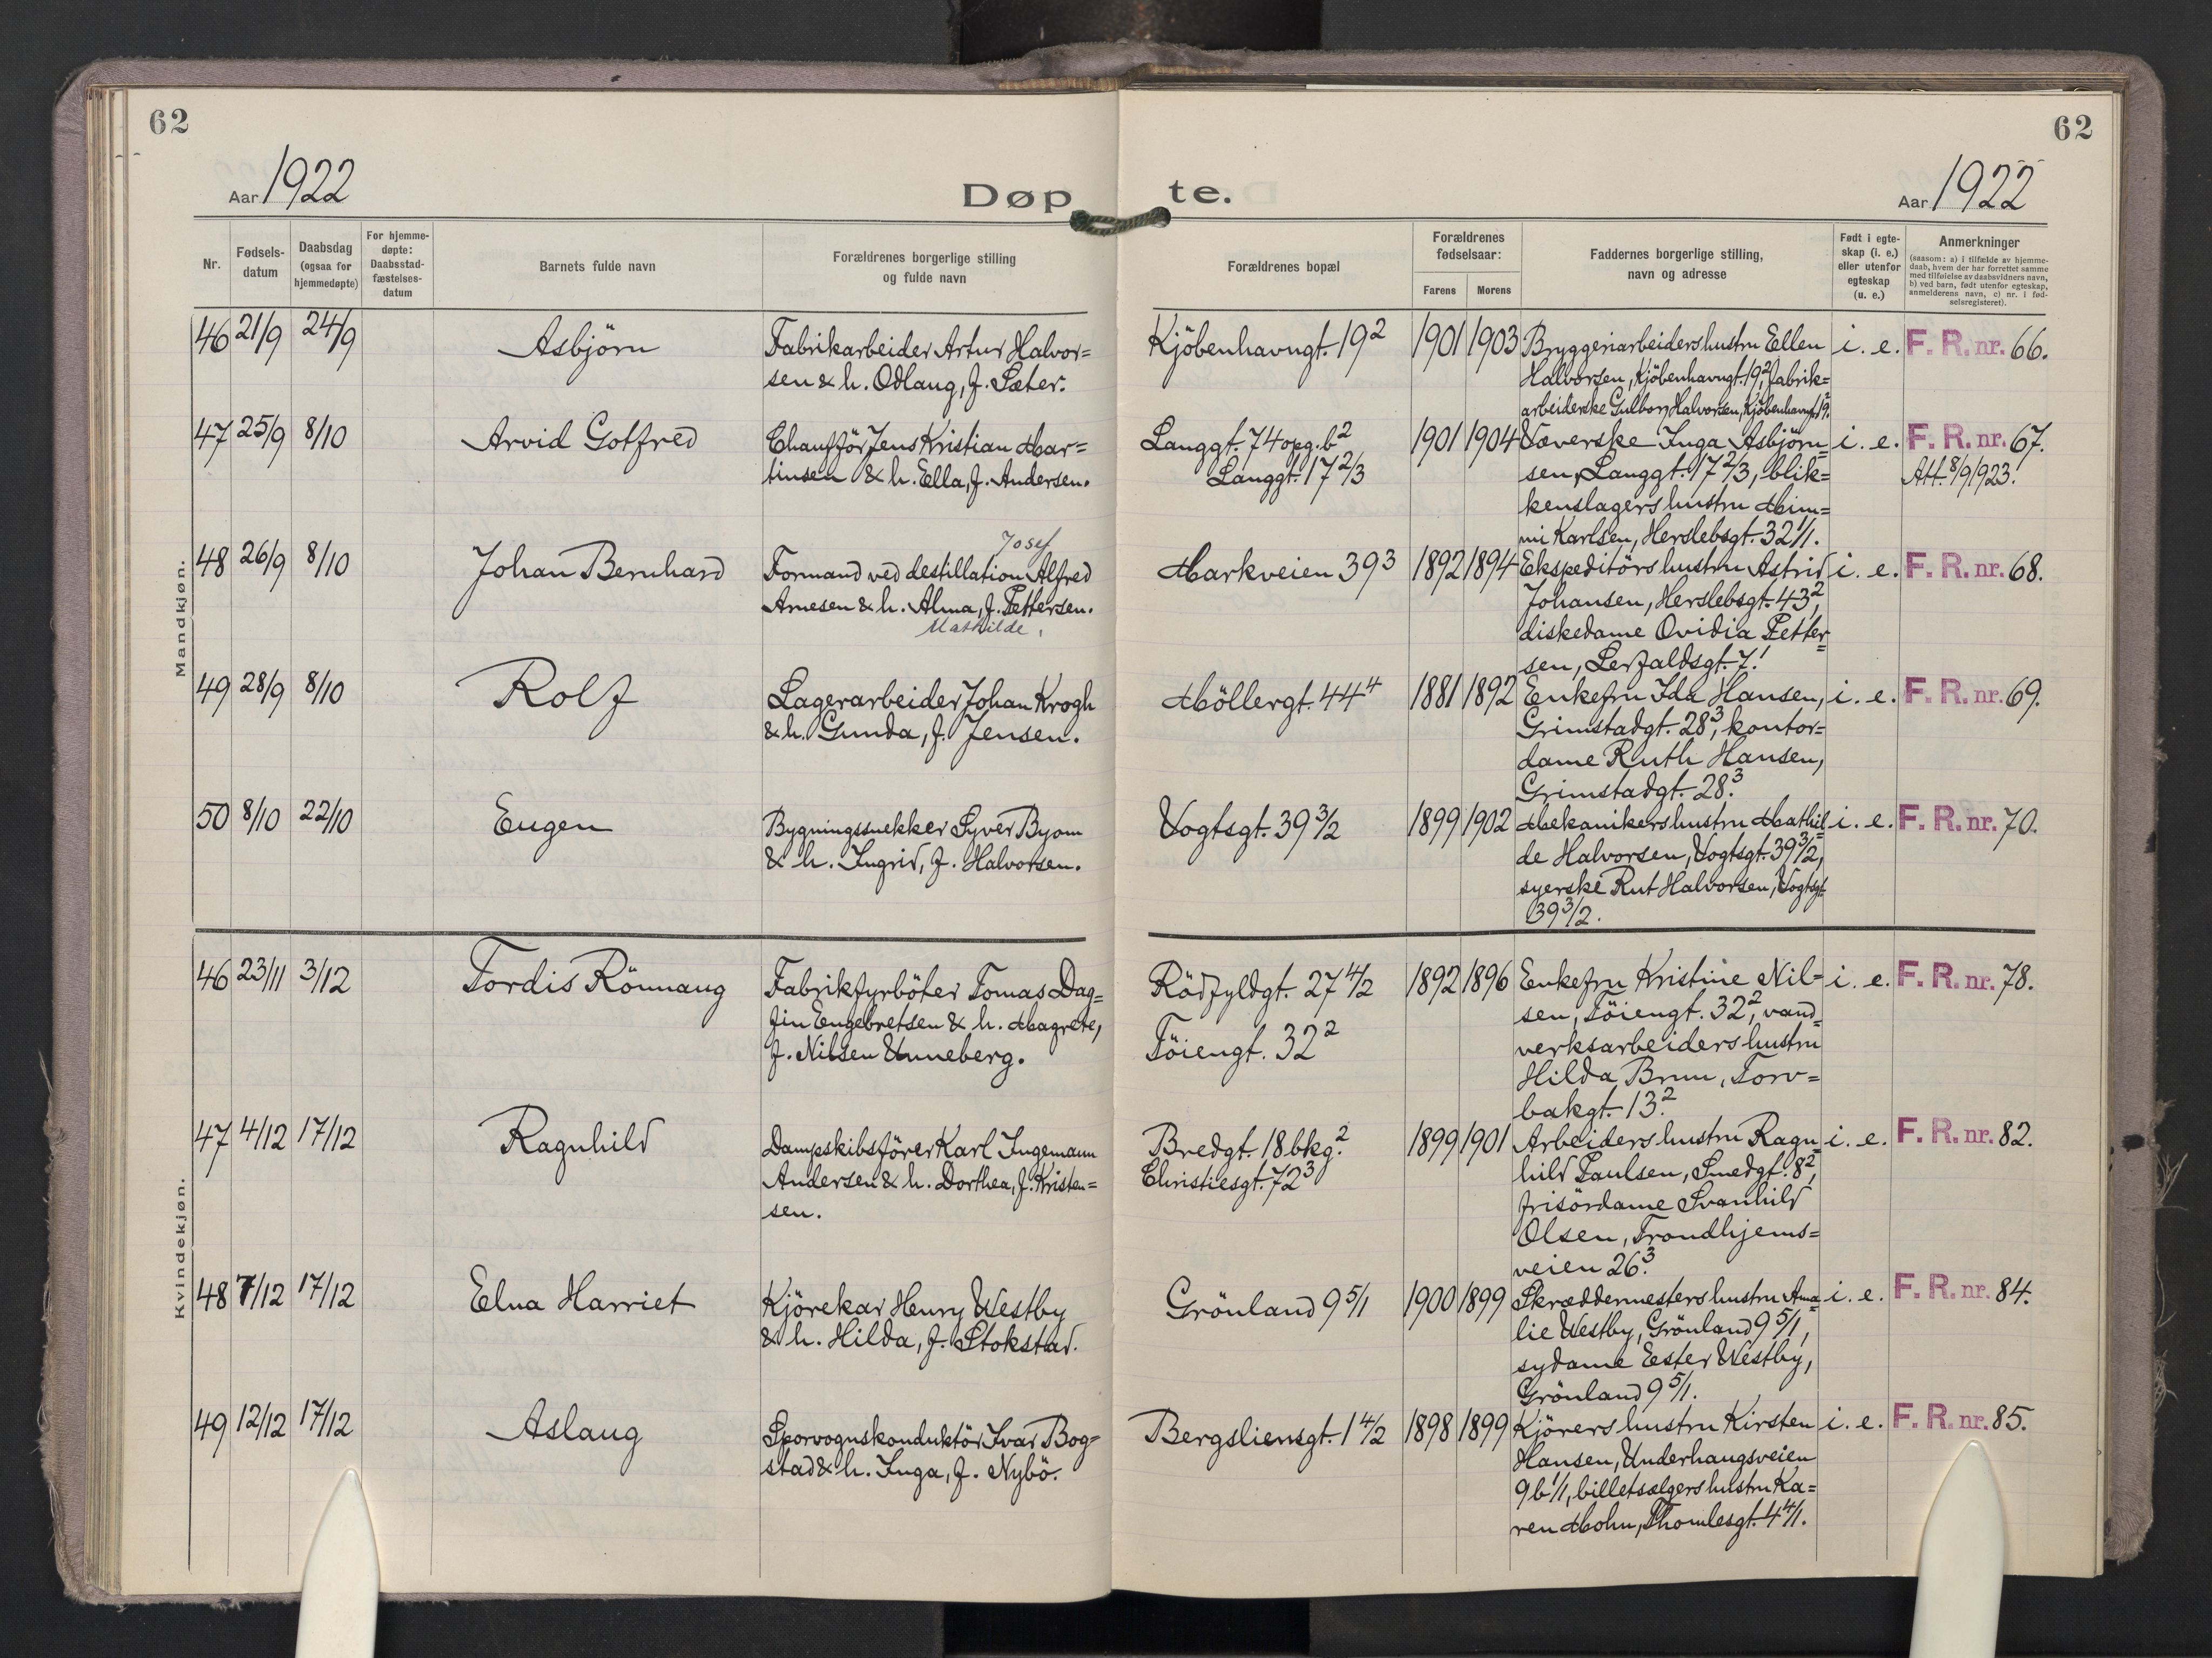 62
62
Aar 1922
Døpte.
Aar 1922
Nr.
Fødsels-
datum
Daabsdag
(ogsaa for
hjemmedøpte)
For hjemme-
døpte:
Daabsstad-
fæstelses-
datum
Barnets fulde navn
Forældrenes borgerlige stilling
og fulde navn
Forældrenes bopæl
Forældrenes
fødselsaar:
Farens
Morens
Faddernes borgerlige stilling,
navn og adresse
Født i egte-
skap (i. e.)
eller utenfor
egteskap
(u. e.)
Anmerkninger
(saasom: a) i tilfælde av hjemme-
daab, hvem der har forrettet samme
med tilføielse av daabsvidners navn,
b) ved barn, født utenfor egteskap,
anmelderens navn, c) nr. i fød-
selsregisteret).
Mandkjøn.
46 21/9 24/9
Asbjörn
Fabrikarbeider Artur Halvor=
sen & h. Odlaug, f. Sæter.
Kjöbenhavngt. 19²
1901 1903
Bryggeriarbeiders hustru Ellen
Halvorsen, Kjöbenhavngt. 19², fabrik=
arbeiderske Gulborg Halvorsen, Kjöbenhavngt. 19².
i. e.
F. R. nr. 66.
47 25/9 8/10
Arvid Gotfred
Chauffför Jens Kristian Mar=
tinsen & h. Ella, f. Andersen.
Langgt. 74 opg. b²
Langgt. 17 2/3
1901 1904
Væverske Inga Asbjörn=
sen, Langgt. 17 2/3, blik=
kenslagers hustru Mim=
mi Karlsen, Herslebsgt. 32 1/1.
i. e.
F. R. nr. 67.
Att. 8/9 1923.
48 26/9 8/10
Johan Bernhard
Josef
Formand ved destillation Alfred
Arnesen & h. Alma, f. Pettersen.
Mathilde.
Markveien 39³
1892 1894
Ekspeditörs hustru Astrid
Johansen, Herslebsgt. 43²,
diskedame Ovidia Petter=
sen, Lerfaldsgt. 7¹.
i. e.
F. R. nr. 68.
49 28/9 8/10
Rolf
Lagerarbeider Johan Krogh
& h. Gunda, f. Jensen.
Möllergt. 44⁴
1881 1892
Enkefru Ida Hansen,
Grimstadgt. 28³, kontor=
dame Ruth Hansen,
Grimstadgt. 28³.
i. e.
F. R. nr. 69.
50 8/10 22/10
Eugen
Bygningssnekker Syver Byom
& h. Ingrid, f. Halvorsen.
Vogtsgt. 39 3/2
1899 1902
Mekanikers hustru Mathil=
de Halvorsen, Vogtsgt. 39 3/2,
syerske Rut Halvorsen, Vogtsgt.
39 3/2.
i. e.
F. R. nr. 70.
Kvindekjøn.
46 23/11 3/12
Tordis Rönnaug
Fabrikfyrböter Tomas Dag=
fin Engebretsen & h. Magrete,
f. Nilsen Unneberg.
Rödfyldgt. 27 4/2
Töiengt. 32²
1892 1896
Enkefru Kristine Nil=
sen, Töiengt. 32², vand=
verksarbeiders hustru
Hilda Brun, Torv=
bakgt. 13².
i. e.
F. R. nr. 78.
47 4/12 17/12
Ragnhild
Dampskibsförer Karl Ingemann
Andersen & h. Dorthea, f. Kristen=
sen.
Bredgt. 18 bkg.²
Christiesgt. 72³
1899 1901
Arbeiders hustru Ragn=
hild Paulsen, Smedgt. 8²,
frisördame Svanhild
Olsen, Trondhjems=
veien 26³.
i. e.
F. R. nr. 82.
48 7/12 17/12
Elna Harriet
Kjörekar Henry Westby
& h. Hilda, f. Stokstad.
Grönland 9 5/1
1900 1899
Skræddermesters hustru Ama=
lie Westby, Grönland 9 5/1,
sydame Ester Westby,
Grönland 9 5/1.
i. e.
F. R. nr. 84.
49 12/12 17/12
Aslaug
Sporvognskonduktör Ivar Bog=
stad & h. Inga, f. Nybö.
Bergsliensgt. 1 4/2
1898 1899
Kjörers hustru Kirsten
Hansen, Underhaugsveien
9 b 1/1, billetsælgers hustru Ka=
ren Mohn, Thomlesgt. 4 4/1.
i. e.
F. R. nr. 85.